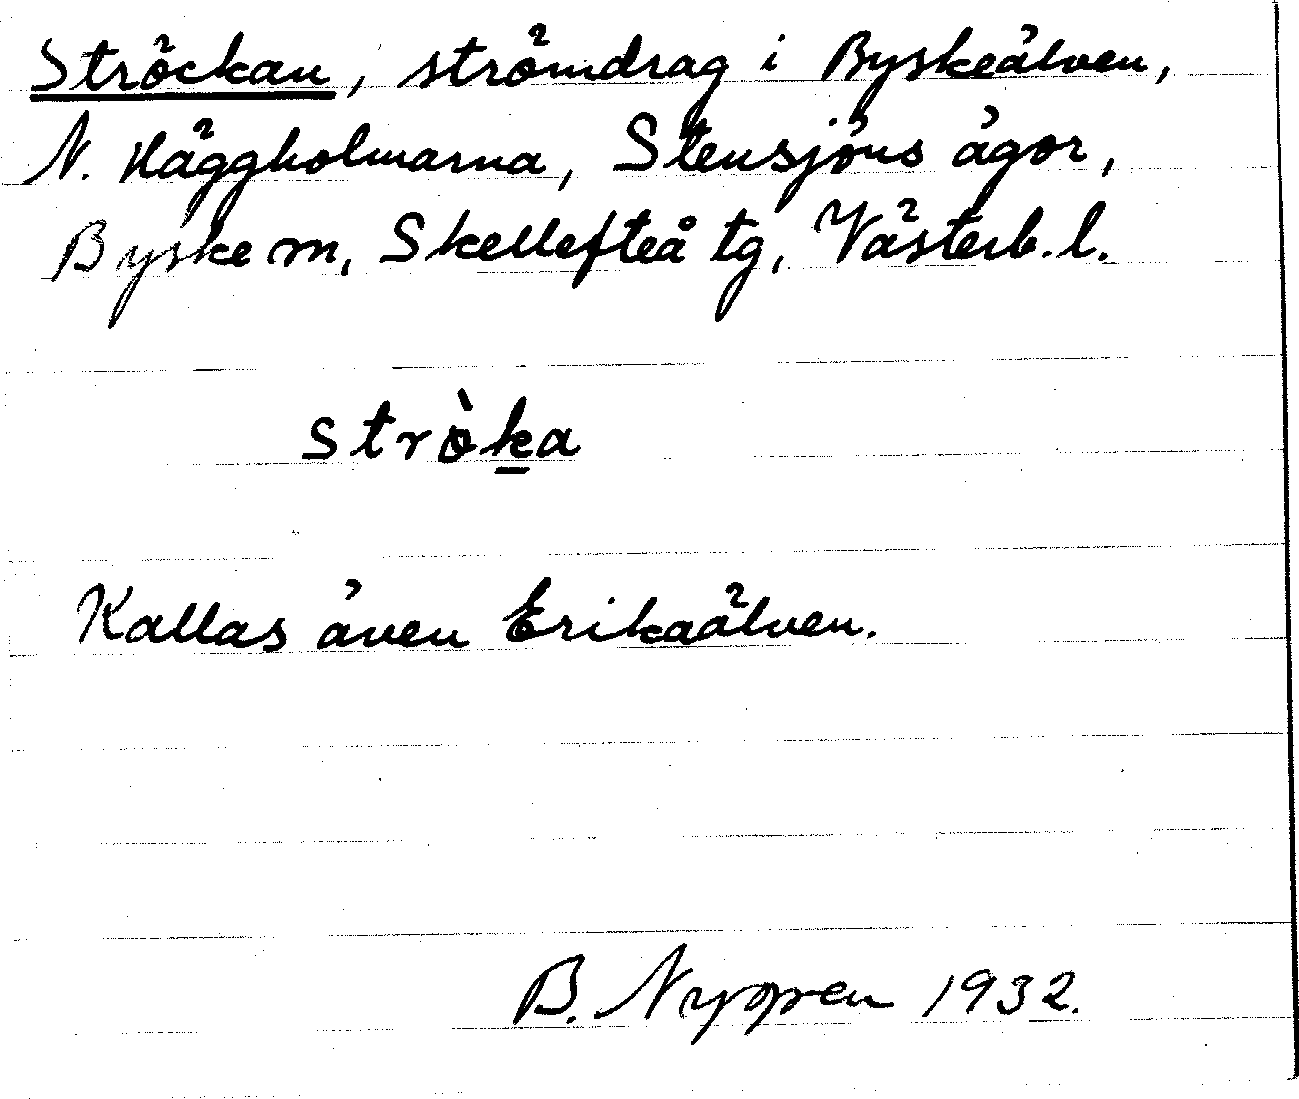 Sträckan, strömdrag i Byskeälven,
N. Häggholmarna, Stensjöns ägor,
Byske m, Skellefteå tg, Västerb. l.
stròka
Kallas även Erikaälven.
B. 1932.